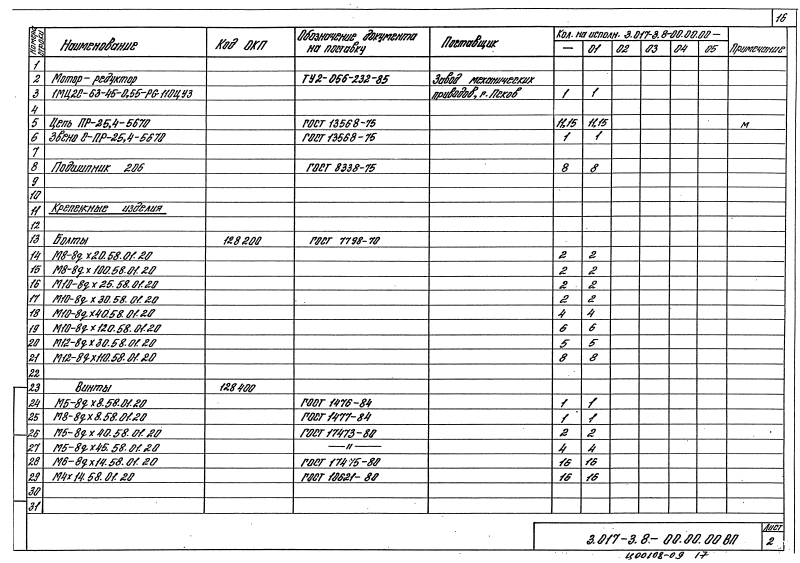 16
Номер строки | Наименование | Код ОКП | Обозначение документа на поставку | Поставщик | Кол. на исполн. 3.017-3.8-00.00.00 - | Примечание
— | 01 | 02 | 03 | 04 | 05
1
2 | Мотор-редуктор | ТУ2-056-232-85 | Завод механических
3 | 1МЦ2С-63-45-0,55-РG 110ЦУ3 | приводов, г. Псков | 1 | 1
4
5 | Цепь ПР-25,4-5670 | ГОСТ 13568-75 | 11,15 | 11,15 | м
6 | Звено С-ПР-25,4-5670 | ГОСТ 13568-75 | 1 | 1
7
8 | Подшипник 206 | ГОСТ 8338-75 | 8 | 8
9
10
11 | Крепежные изделия
12
13 | Болты | 128200 | ГОСТ 7798-70
14 | М8-8g×20.58.01.20 | 2 | 2
15 | М8-8g×100.58.01.20 | 2 | 2
16 | М10-8g×25.58.01.20 | 2 | 2
17 | М10-8g×30.58.01.20 | 2 | 2
18 | М10-8g×40.58.01.20 | 4 | 4
19 | М10-8g×120.58.01.20 | 6 | 6
20 | М12-8g×30.58.01.20 | 5 | 5
21 | М12-8g×110.58.01.20 | 8 | 8
22
23 | Винты | 128400
24 | М5-8g×8.58.01.20 | ГОСТ 1476-84 | 1 | 1
25 | М8-8g×8.58.01.20 | ГОСТ 1477-84 | 1 | 1
26 | М5-8g×40.58.01.20 | ГОСТ 17473-80 | 2 | 2
27 | М5-8g×45.58.01.20 | —"— | 4 | 4
28 | М6-8g×14.58.01.20 | ГОСТ 17475-80 | 16 | 16
29 | М4×14.58.01.20 | ГОСТ 10621-80 | 16 | 16
30
31
3.017-3.8-00.00.00 ВП | Лист 2
Ц00108-09 17